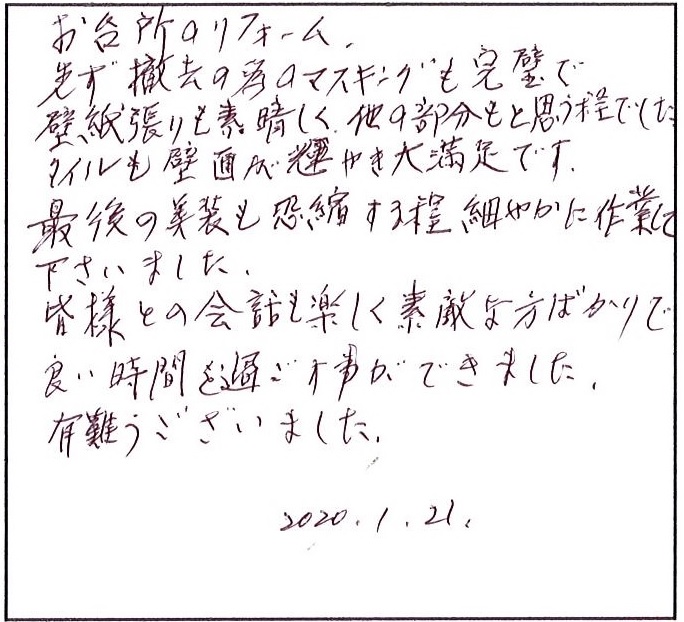 お台所のリフォーム、
先ず撤去の為のマスキングも完璧で
壁紙張りも素晴しく他の部分もと思う程でした
タイルも壁面が輝やき大満足です.
最後の美装も恐縮する程細やかに作業して
下さいました、
皆様との会話も楽しく素敵な方ばかりで
良い時間を過ごす事ができました.
有難うございました.
2020.1.21.